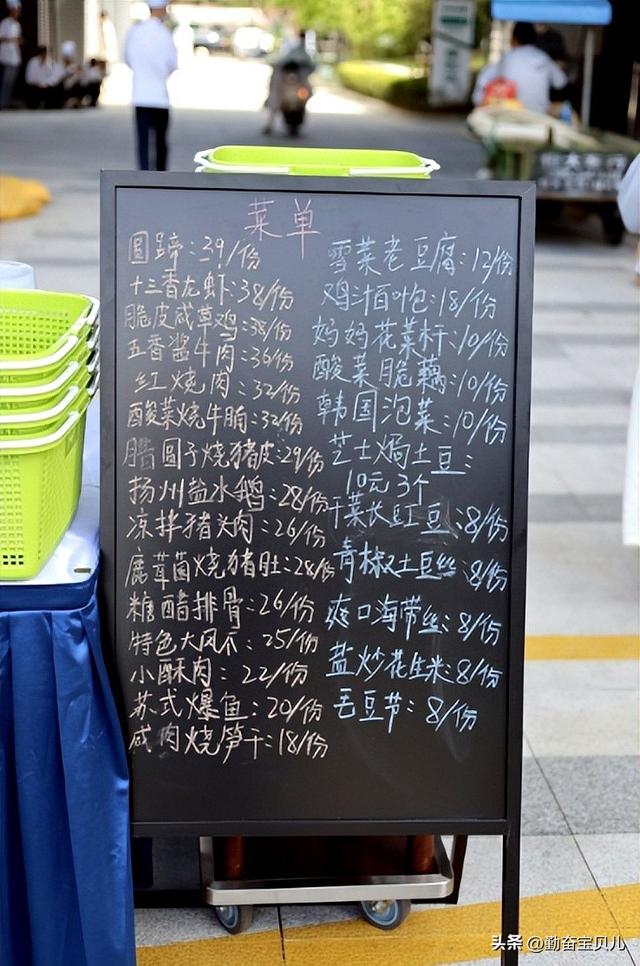 菜单
圆蹄:39/份
十三香龙虾:38/份
脆皮咸草鸡:38/份
五香酱牛肉:36/份
红烧肉:32/份
酸菜烧牛腩:32/份
腊圆子烧猪皮:29/份
扬州盐水鹅:28/份
凉拌猪头肉:26/份
鹿茸菌烧猪肚:28/份
糖醋排骨:26/份
特色大风爪:25/份
小酥肉:22/份
苏式爆鱼:20/份
咸肉烧笋干:18/份
雪菜老豆腐:12/份
鸡汁百叶包:18/份
妈妈花菜杆:10/份
酸菜脆藕:10/份
韩国泡菜:10/份
芝士焗土豆:
10元3个
干菜长豇豆:8/份
青椒土豆丝:8/份
爽口海带丝:8/份
盐炒花生米:8/份
毛豆节:8/份
头条 @勤奋宝贝儿